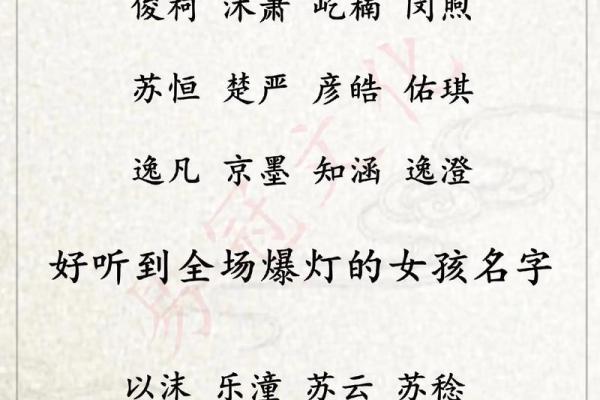 俊柯 沐萧 屹楠 闵煦
苏恒 楚严 彦皓 佑琪
逸凡 京墨 知涵 逸澄
好听到全场爆灯的女孩名字
以沫 乐潼 苏云 苏稔